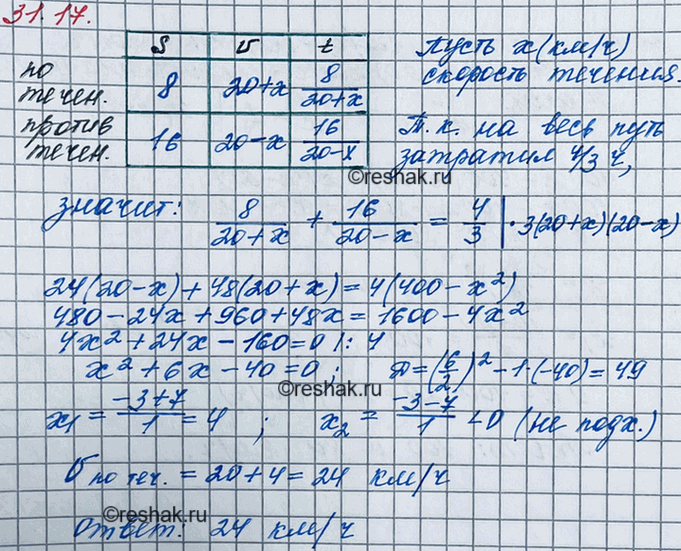 31.17.
S υ t
по течен. 8 20+x 8/(20+x)
против течен. 16 20-x 16/(20-x)
Пусть x(км/ч)
скорость течения.
Т.к. на весь путь
затратил 4/3 ч,
©reshak.ru
значит: 8/(20+x) + 16/(20-x) = 4/3 | ·3(20+x)(20-x)
24(20-x)+48(20+x)=4(400-x²)
480-24x+960+48x=1600-4x²
4x²+24x-160=0 |:4
x²+6x-40=0; D=(6/2)²-1·(-40)=49
©reshak.ru
x₁ = (-3+7)/1 = 4 ; x₂ = (-3-7)/1 <0 (не подх.)
υ по теч. = 20+4=24 км/ч
©reshak.ru
Ответ: 24 км/ч